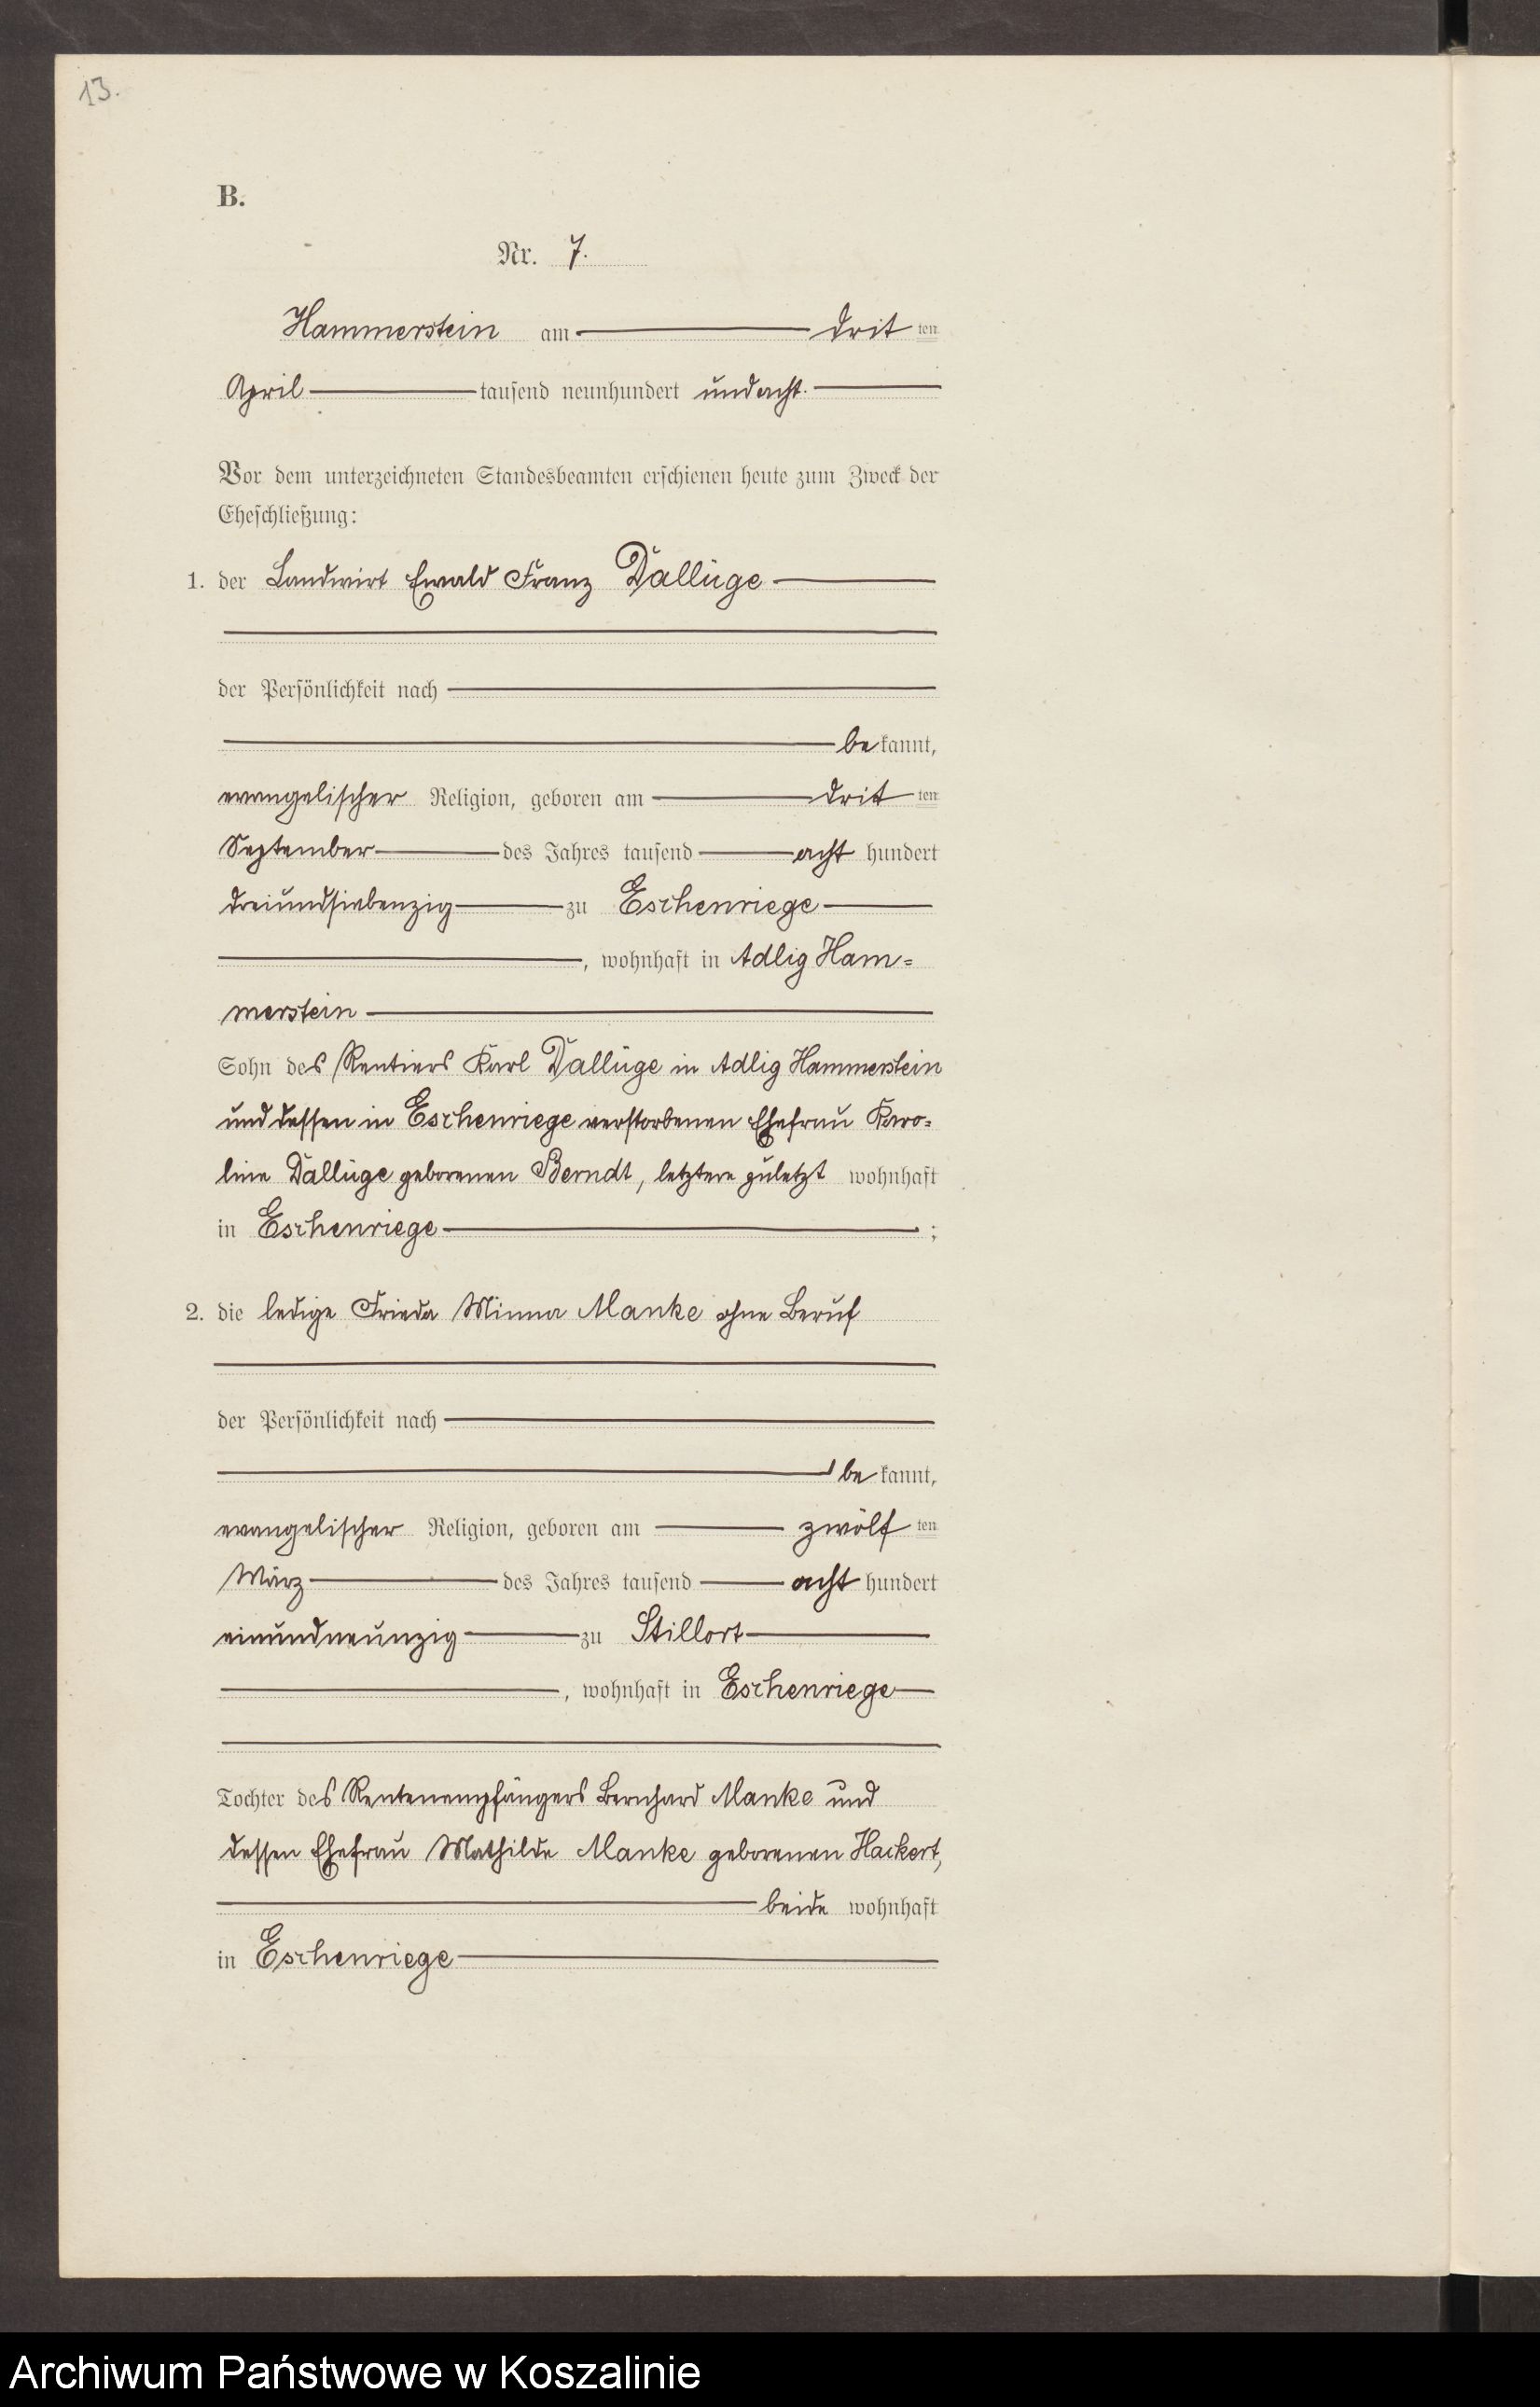 13.
B.
Nr. 7.
Hammerstein am drit ten
April tausend neunhundert undacht.
Vor dem unterzeichneten Standesbeamten erschienen heute zum Zweck der
Eheschließung:
1. der Landwirt Ewald Franz Dallüge
der Persönlichkeit nach
be kannt,
evangelischer Religion, geboren am drit ten
September des Jahres tausend acht hundert
dreiundsiebenzig zu Eschenriege
, wohnhaft in Adlig Ham=
merstein
Sohn des Rentiers Karl Dallüge in Adlig Hammerstein
und dessen in Eschenriege verstorbenen Ehefrau Karo=
line Dallüge geborenen Berndt, letztere zuletzt wohnhaft
in Eschenriege ;
2. die ledige Frieda Minna Manke ohne Beruf
der Persönlichkeit nach
be kannt,
evangelischer Religion, geboren am zwölf ten
März des Jahres tausend acht hundert
einundneunzig zu Stillort
, wohnhaft in Eschenriege
Tochter des Rentenempfängers Bernhard Manke und
dessen Ehefrau Mathilde Manke geborenen Hackert,
beide wohnhaft
in Eschenriege
Archiwum Państwowe w Koszalinie